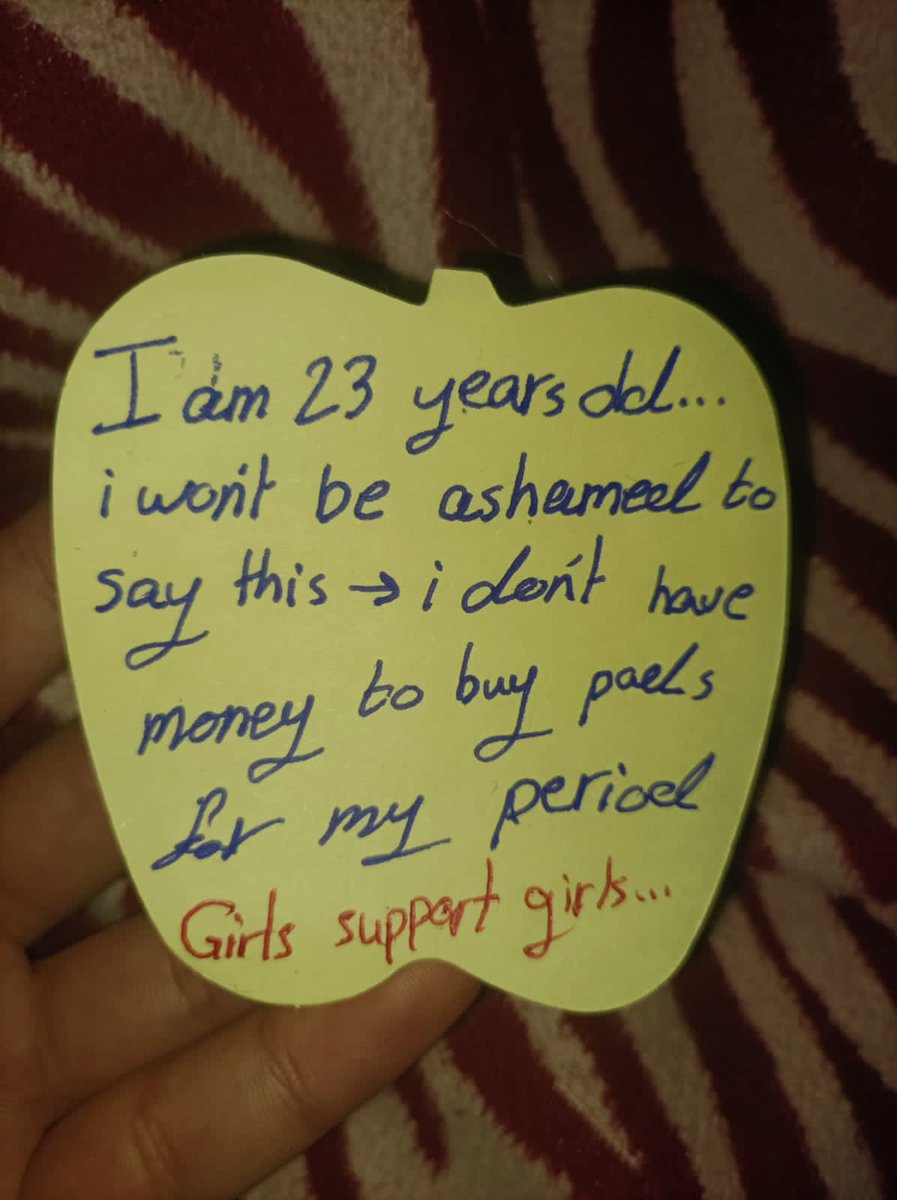 I am 23 years old...
i won't be ashamed to
say this → i don't have
money to buy pads
for my period
Girls support girls...